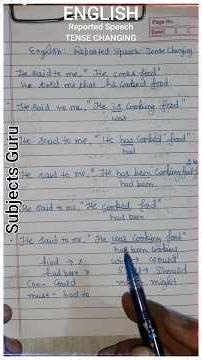 ENGLISH
Reported Speech
TENSE CHANGING
Page No.
Date
English: Reported Speech: Tense Changing
He said to me, "He cooks food"
He told me that he cooked food
He said to me, "He is cooking food"
was
He said to me, "He has cooked food"
had
He said to me, "He has been cooking
had been
He said to me, "He cooked food"
had
He said to me, "He was cooking food"
had been cooking
had → x
will → could
had been x
→ should
Can → could
might
must → had to
Subjects Guru